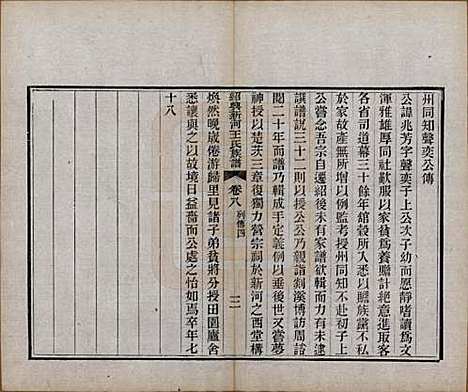 州同知聲奕公傳
公諱兆芳字聲奕子上公次子幼而愿靜嗜讀爲文
渾雅雄厚同社歎服以家貧爲養贍計絕意進取客
各省司道幕三十餘年舘穀所入悉以贍族黨不私
於家故產無所增以例監考授州同知不赴初子上
公嘗念吾宗自遷紹以來未有家譜欲輯而未逮
譔譜説三十二則以授公公乃親詣剡溪博訪周諮
閱二十年而譜乃輯成手定義例以垂後世又嘗夢
神授以楚茨三章復獨力營宗祠於新河之西堂構
煥然晚歲倦游歸里見諸子弟貧將分授田園廬舍
悉讓與之以故境日益嗇而公處之怡如焉卒年七
十八
紹興新河王氏族譜
卷八
列傳四
三